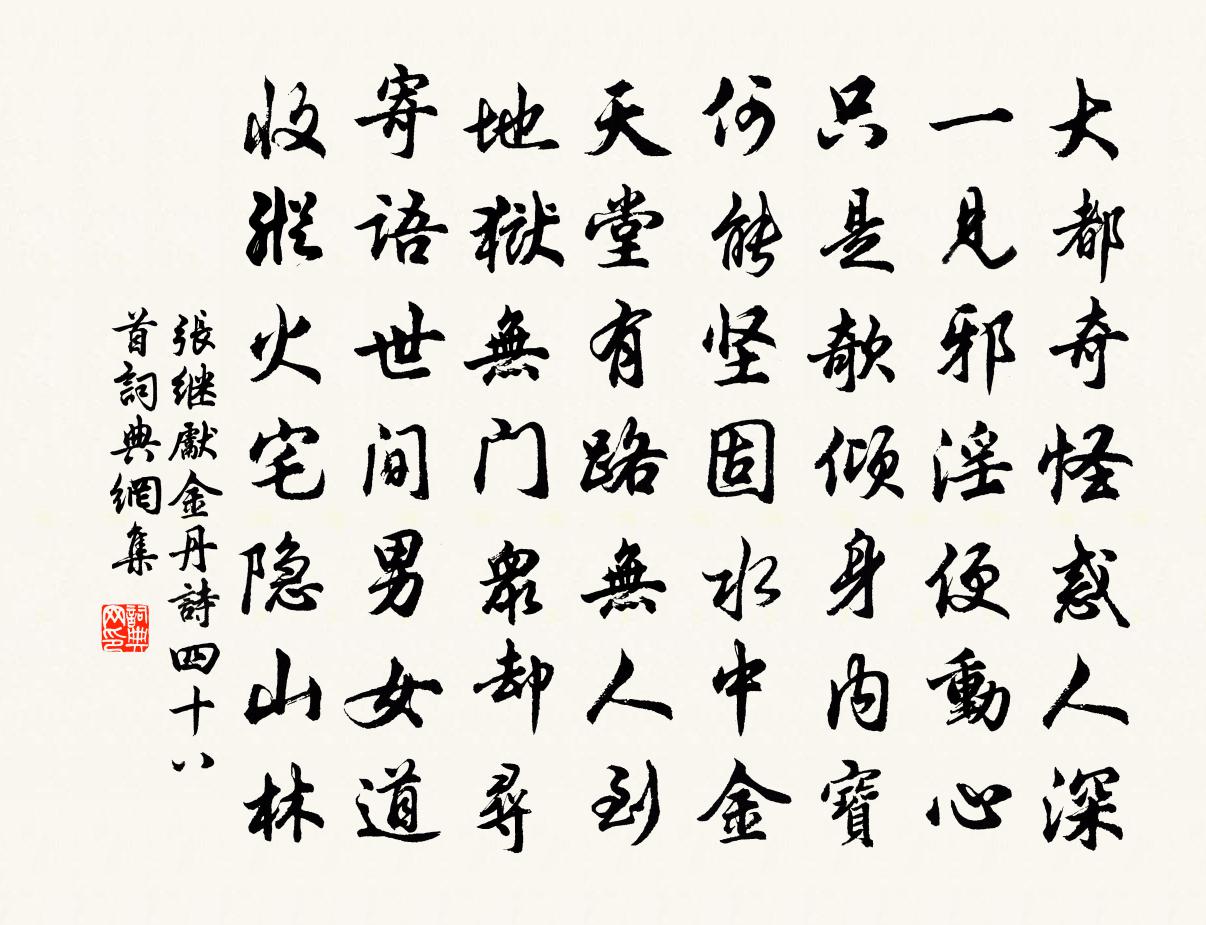 大都奇怪惑人深
一見邪淫便動心
只是欹傾身内寶
何能坚固水中金
天堂有路無人到
地獄無门衆却尋
寄语世间男女道
收縱火宅隐山林
張继獻金丹詩四十八
首詞典網集
詞典网印